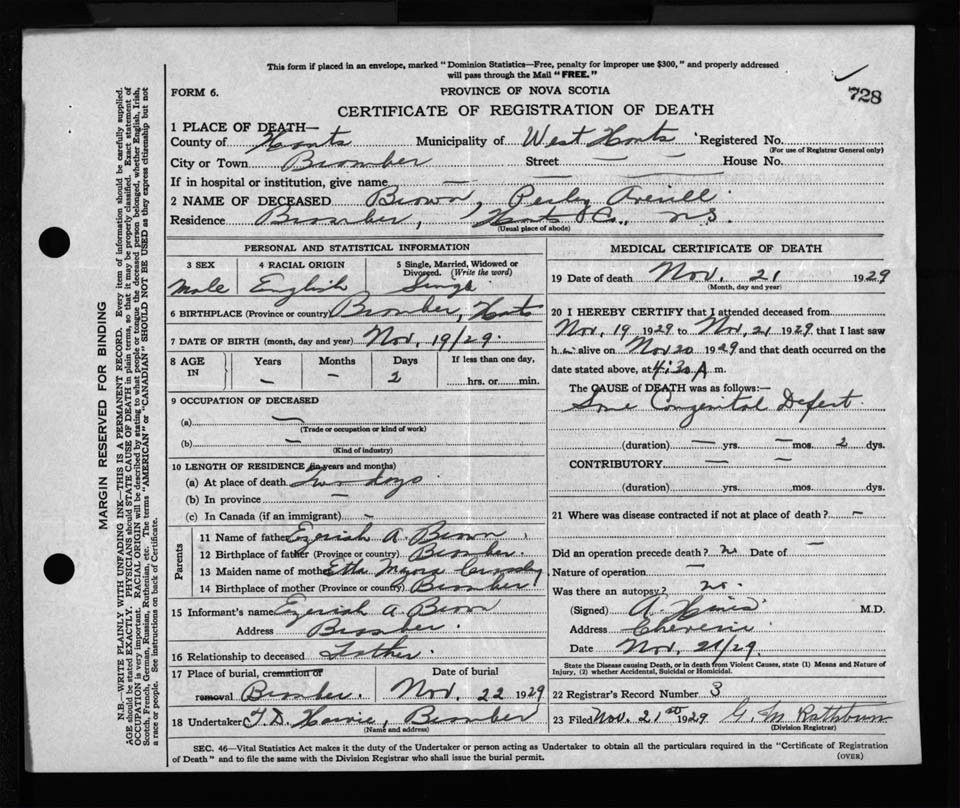 This form if placed in an envelope, marked "Dominion Statistics—Free, penalty for improper use $300," and properly addressed
will pass through the Mail "FREE."
728
FORM 6.
PROVINCE OF NOVA SCOTIA
CERTIFICATE OF REGISTRATION OF DEATH
1 PLACE OF DEATH—
County of Hants Municipality of West Hants Registered No.
(For use of Registrar General only)
City or Town Bramber Street — — House No.
If in hospital or institution, give name — —
2 NAME OF DECEASED Brown, Perley
Residence Bramber, Hants Co., N.S.
(Usual place of abode)
PERSONAL AND STATISTICAL INFORMATION
3 SEX
Male
4 RACIAL ORIGIN
English
5 Single, Married, Widowed or
Divorced. (Write the word)
Single
6 BIRTHPLACE (Province or country) Bramber, Hants
7 DATE OF BIRTH (month, day and year) Nov. 19/29.
8 AGE IN
Years Months Days If less than one day,
— — 2 hrs. or min.
9 OCCUPATION OF DECEASED
(a) —
(Trade or occupation or kind of work)
(b) —
(Kind of industry)
10 LENGTH OF RESIDENCE (in years and months)
(a) At place of death two days
(b) In province —
(c) In Canada (if an immigrant) —
Parents
11 Name of father A. Brown
12 Birthplace of father (Province or country) Bramber.
13 Maiden name of mother Etta
14 Birthplace of mother (Province or country) Bramber
15 Informant's name A. Brown
Address Bramber.
16 Relationship to deceased Father.
17 Place of burial, cremation or removal Bramber.
Date of burial
Nov. 22 1929
18 Undertaker Bramber
(Name and address)
MEDICAL CERTIFICATE OF DEATH
19 Date of death Nov. 21 1929
(Month, day and year)
20 I HEREBY CERTIFY that I attended deceased from
Nov. 19 1929 to Nov. 21 1929 that I last saw
him alive on Nov 20 1929 and that death occurred on the
date stated above, at 4:30 A. m.
The CAUSE of DEATH was as follows:—
Some Congenital Defect
(duration) — yrs. — mos. 2 dys.
CONTRIBUTORY — —
(duration) yrs. mos. dys.
21 Where was disease contracted if not at place of death? —
Did an operation precede death? no Date of —
Nature of operation —
Was there an autopsy? no.
(Signed) A. M.D.
Address Cheverie
Date Nov. 21/29.
State the Disease causing Death, or in death from Violent Causes, state (1) Means and Nature of
Injury, (2) whether Accidental, Suicidal or Homicidal.
22 Registrar's Record Number 3
23 Filed Nov. 21st 1929 G. M Rathbun
(Division Registrar)
SEC. 46—Vital Statistics Act makes it the duty of the Undertaker or person acting as Undertaker to obtain all the particulars required in the "Certificate of Registration
of Death" and to file the same with the Division Registrar who shall issue the burial permit.
(OVER)
MARGIN RESERVED FOR BINDING
N.B.—WRITE PLAINLY WITH UNFADING INK—THIS IS A PERMANENT RECORD. Every item of information should be carefully supplied.
AGE should be stated EXACTLY. PHYSICIANS should STATE CAUSE OF DEATH in plain terms, so that it may be properly classified. Exact statement of
OCCUPATION is very important. RACIAL ORIGIN will be described by stating to what people or tongue the deceased person belonged, whether English, Irish,
Scotch, French, German, Russian, Ruthenian, etc. The terms "AMERICAN" or "CANADIAN" SHOULD NOT BE USED as they express citizenship but not
a race or people. See instructions on back of Certificate.